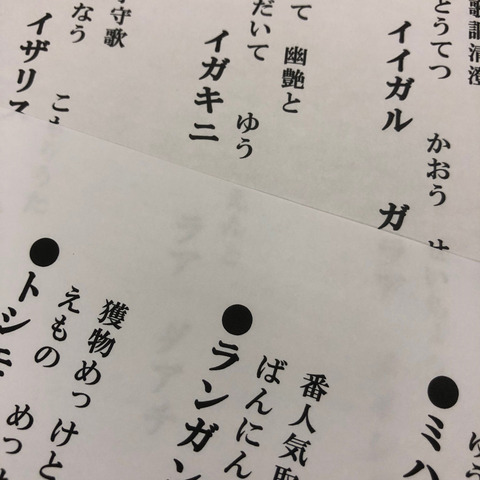 清澄
とうてつ　かおう
イイガル　ガ
て　幽艶と
だいて　ゆう
イガキニ
守歌
なう　こ
イザリス
ゆう
●ミハ
番人気取
ばんにん
●ランガン
獲物めっけと
えもの　めっ
●トシ